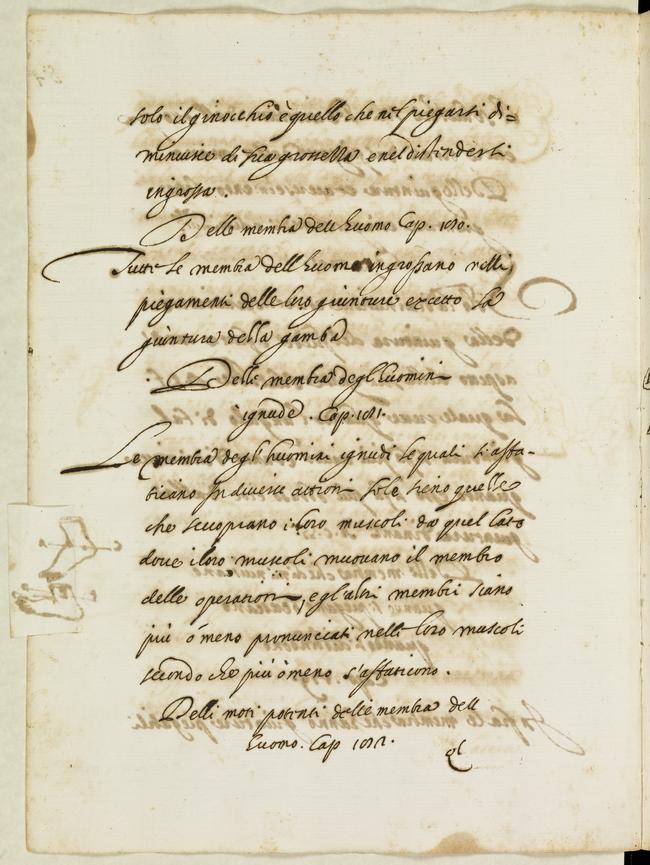 solo il ginocchio è quello che nel piegarsi di=
minuisce di sua grossezza e nel distendersi
ingrossa.
Delle membra dell huomo Cap. 180.
Tutte le membra dell huomo ingrossano nelli
piegamenti delle loro giunture excetto la
giuntura della gamba
Delle membra degl huomini
ignude. Cap. 181.
Le membra degl' huomini ignudi le quali s'affa-
ticano in diverse attioni sole sieno quelle
che scuoprano i loro muscoli da quel lato
dove i loro muscoli muovano il membro
delle operationi, e gl'altri membri siano
più ò meno pronunciati nelli loro muscoli
secondo che più ò meno s'affaticono.
Delli moti potenti delle membra dell
huomo. Cap 182.